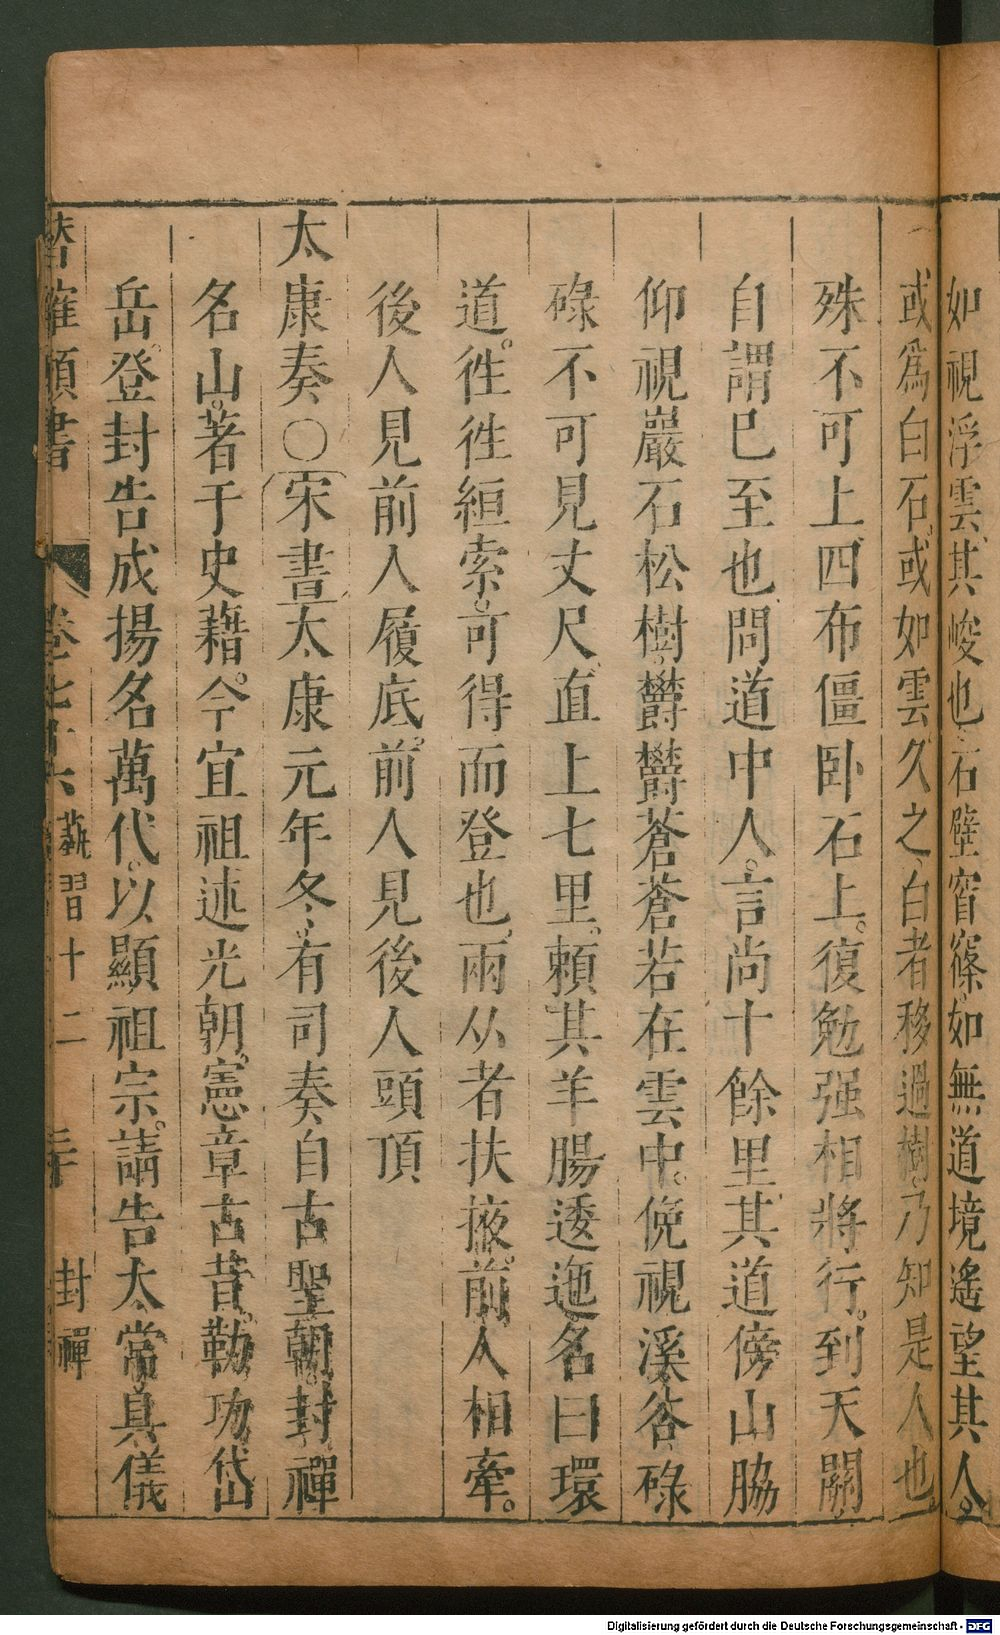 如視浮雲其峻也石壁窅篠如無道境遙望其人
或為白石或如雲久之白者移過樹乃知是人也
殊不可上四布僵卧石上復勉强相將行到天關
自謂已至也問道中人言尚十餘里其道傍山脇
仰視巖石松樹欝欝蒼蒼若在雲中俛視溪谷碌
碌不可見丈尺直上七里頼其羊腸逶迤名曰環
道徃徃絙索可得而登也兩从者扶掖前人相牽
後人見前人履底前人見後人頭頂
太康奏〇宋書太康元年冬有司奏自古聖朝封禪
名山著于史藉今宜祖述光朝憲章古昔勒功岱
岳登封告成揚名萬代以顯祖宗請告太常具儀
確類書 卷七十六 蓺習十二 三十 封禪
Digitalisierung gefördert durch die Deutsche Forschungsgemeinschaft - DFG